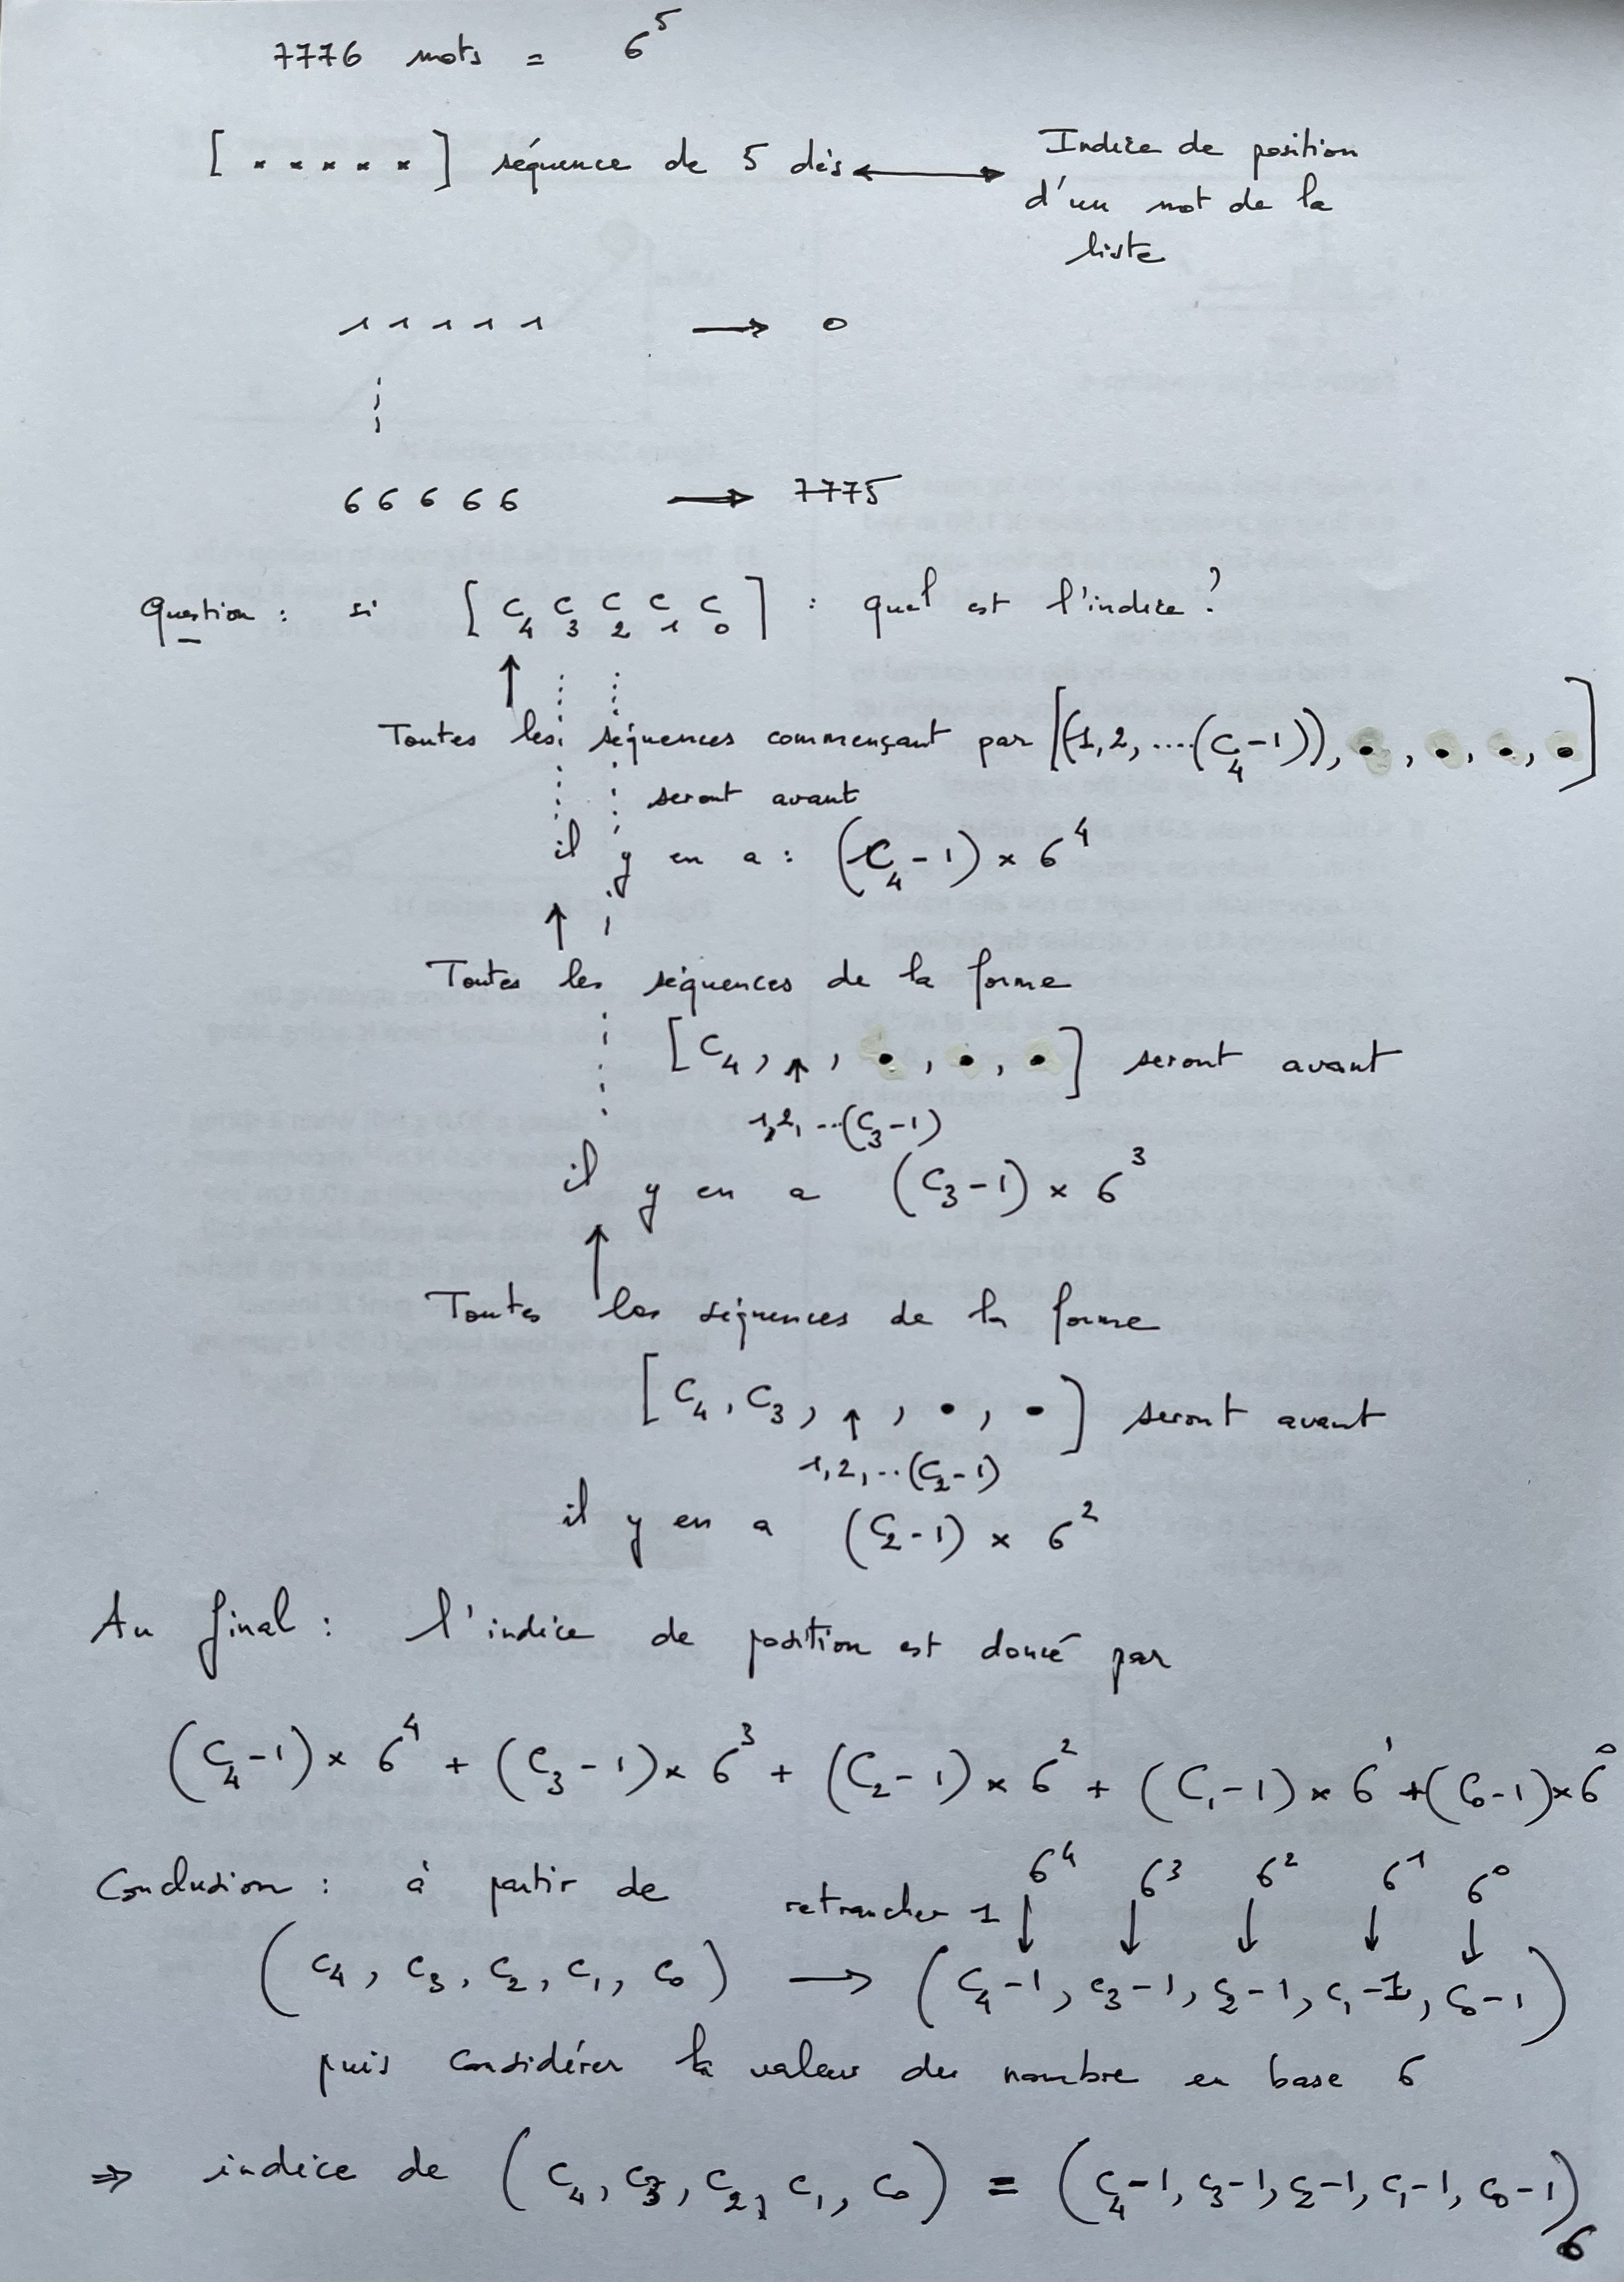 7776 mots = 6^5
[ * * * * * ] séquence de 5 dés ⟷ Indice de position
d'un mot de la
liste
1 1 1 1 1 → 0
6 6 6 6 6 → 7775
Question : si [ C_4 C_3 C_2 C_1 C_0 ] : quel est l'indice ?
↑
Toutes les séquences commençant par [(1,2,....(C_4-1)), •, •, •, •]
seront avant
il y en a : (C_4-1) × 6^4
↑
Toutes les séquences de la forme
[C_4, ↑, •, •, •] seront avant
1,2,...(C_3-1)
il y en a (C_3-1) × 6^3
↑
Toutes les séquences de la forme
[C_4, C_3, ↑, •, •] seront avant
1,2,...(C_2-1)
il y en a (C_2-1) × 6^2
Au final : l'indice de position est donné par
(C_4-1) × 6^4 + (C_3-1) × 6^3 + (C_2-1) × 6^2 + (C_1-1) × 6^1 + (C_0-1) × 6^0
6^4 6^3 6^2 6^1 6^0
Conclusion : à partir de retrancher 1 ↓ ↓ ↓ ↓ ↓
(C_4, C_3, C_2, C_1, C_0) → (C_4-1, C_3-1, C_2-1, C_1-1, C_0-1)
puis considérer la valeur du nombre en base 6
⇒ indice de (C_4, C_3, C_2, C_1, C_0) = (C_4-1, C_3-1, C_2-1, C_1-1, C_0-1)_6